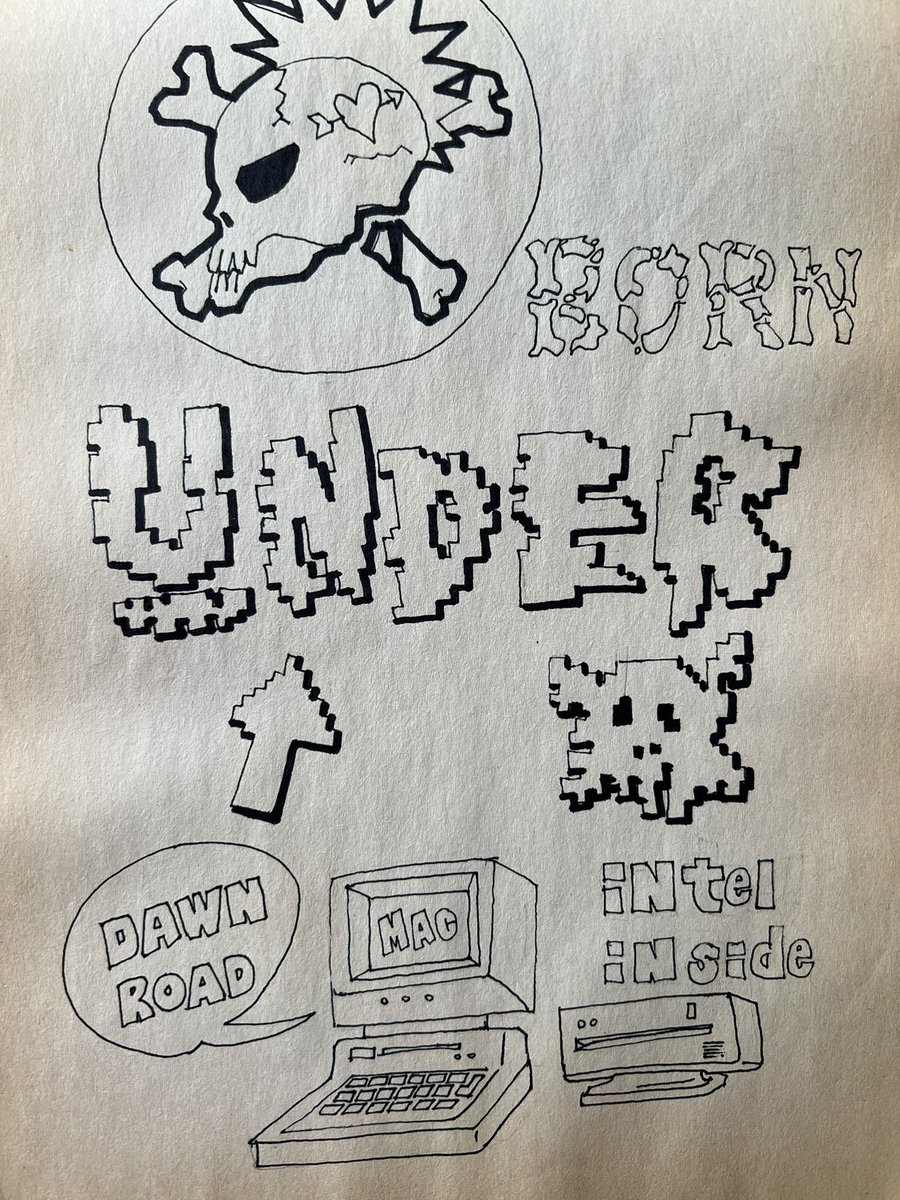 BORN
UNDER
DAWN
ROAD
MAC
iNtel
iNside